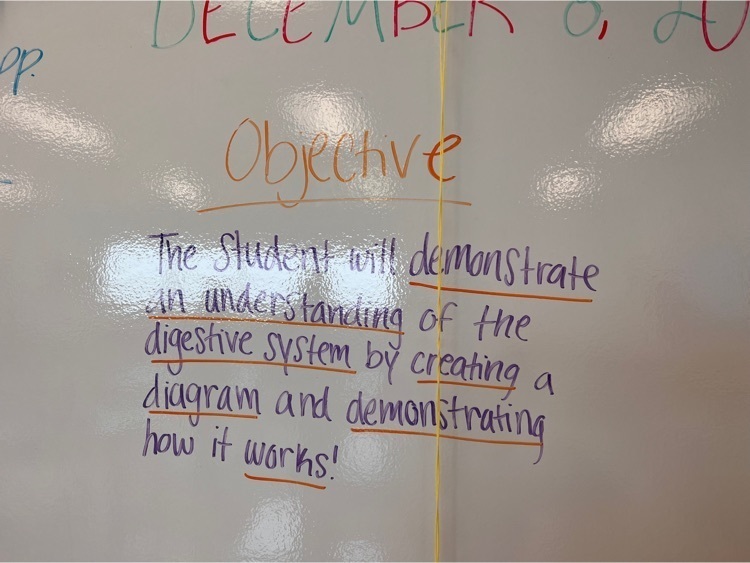 DECEMBER
pp.
Objective
The Student will demonstrate
an understanding of the
digestive system by creating a
diagram and demonstrating
how it works!